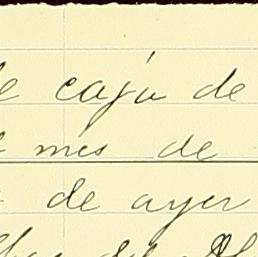 e caja de
mes de
de ayer
del